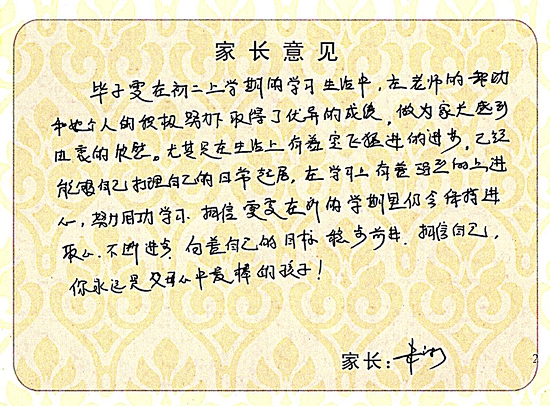 家长意见
毕子雯在初二上学期的学习生活中，在老师的帮助
和她个人的积极努力下取得了优异的成绩，做为家长感到
由衷的欣慰。尤其是在生活上有着突飞猛进的进步，已经
能够自己打理自己的日常起居，在学习上有着强烈的上进
心，努力用功学习。相信雯雯在新的学期里仍会保持进
取心，不断进步，向着自己的目标稳步前进。相信自己，
你永远是父母心中最棒的孩子！
家长：毕
2